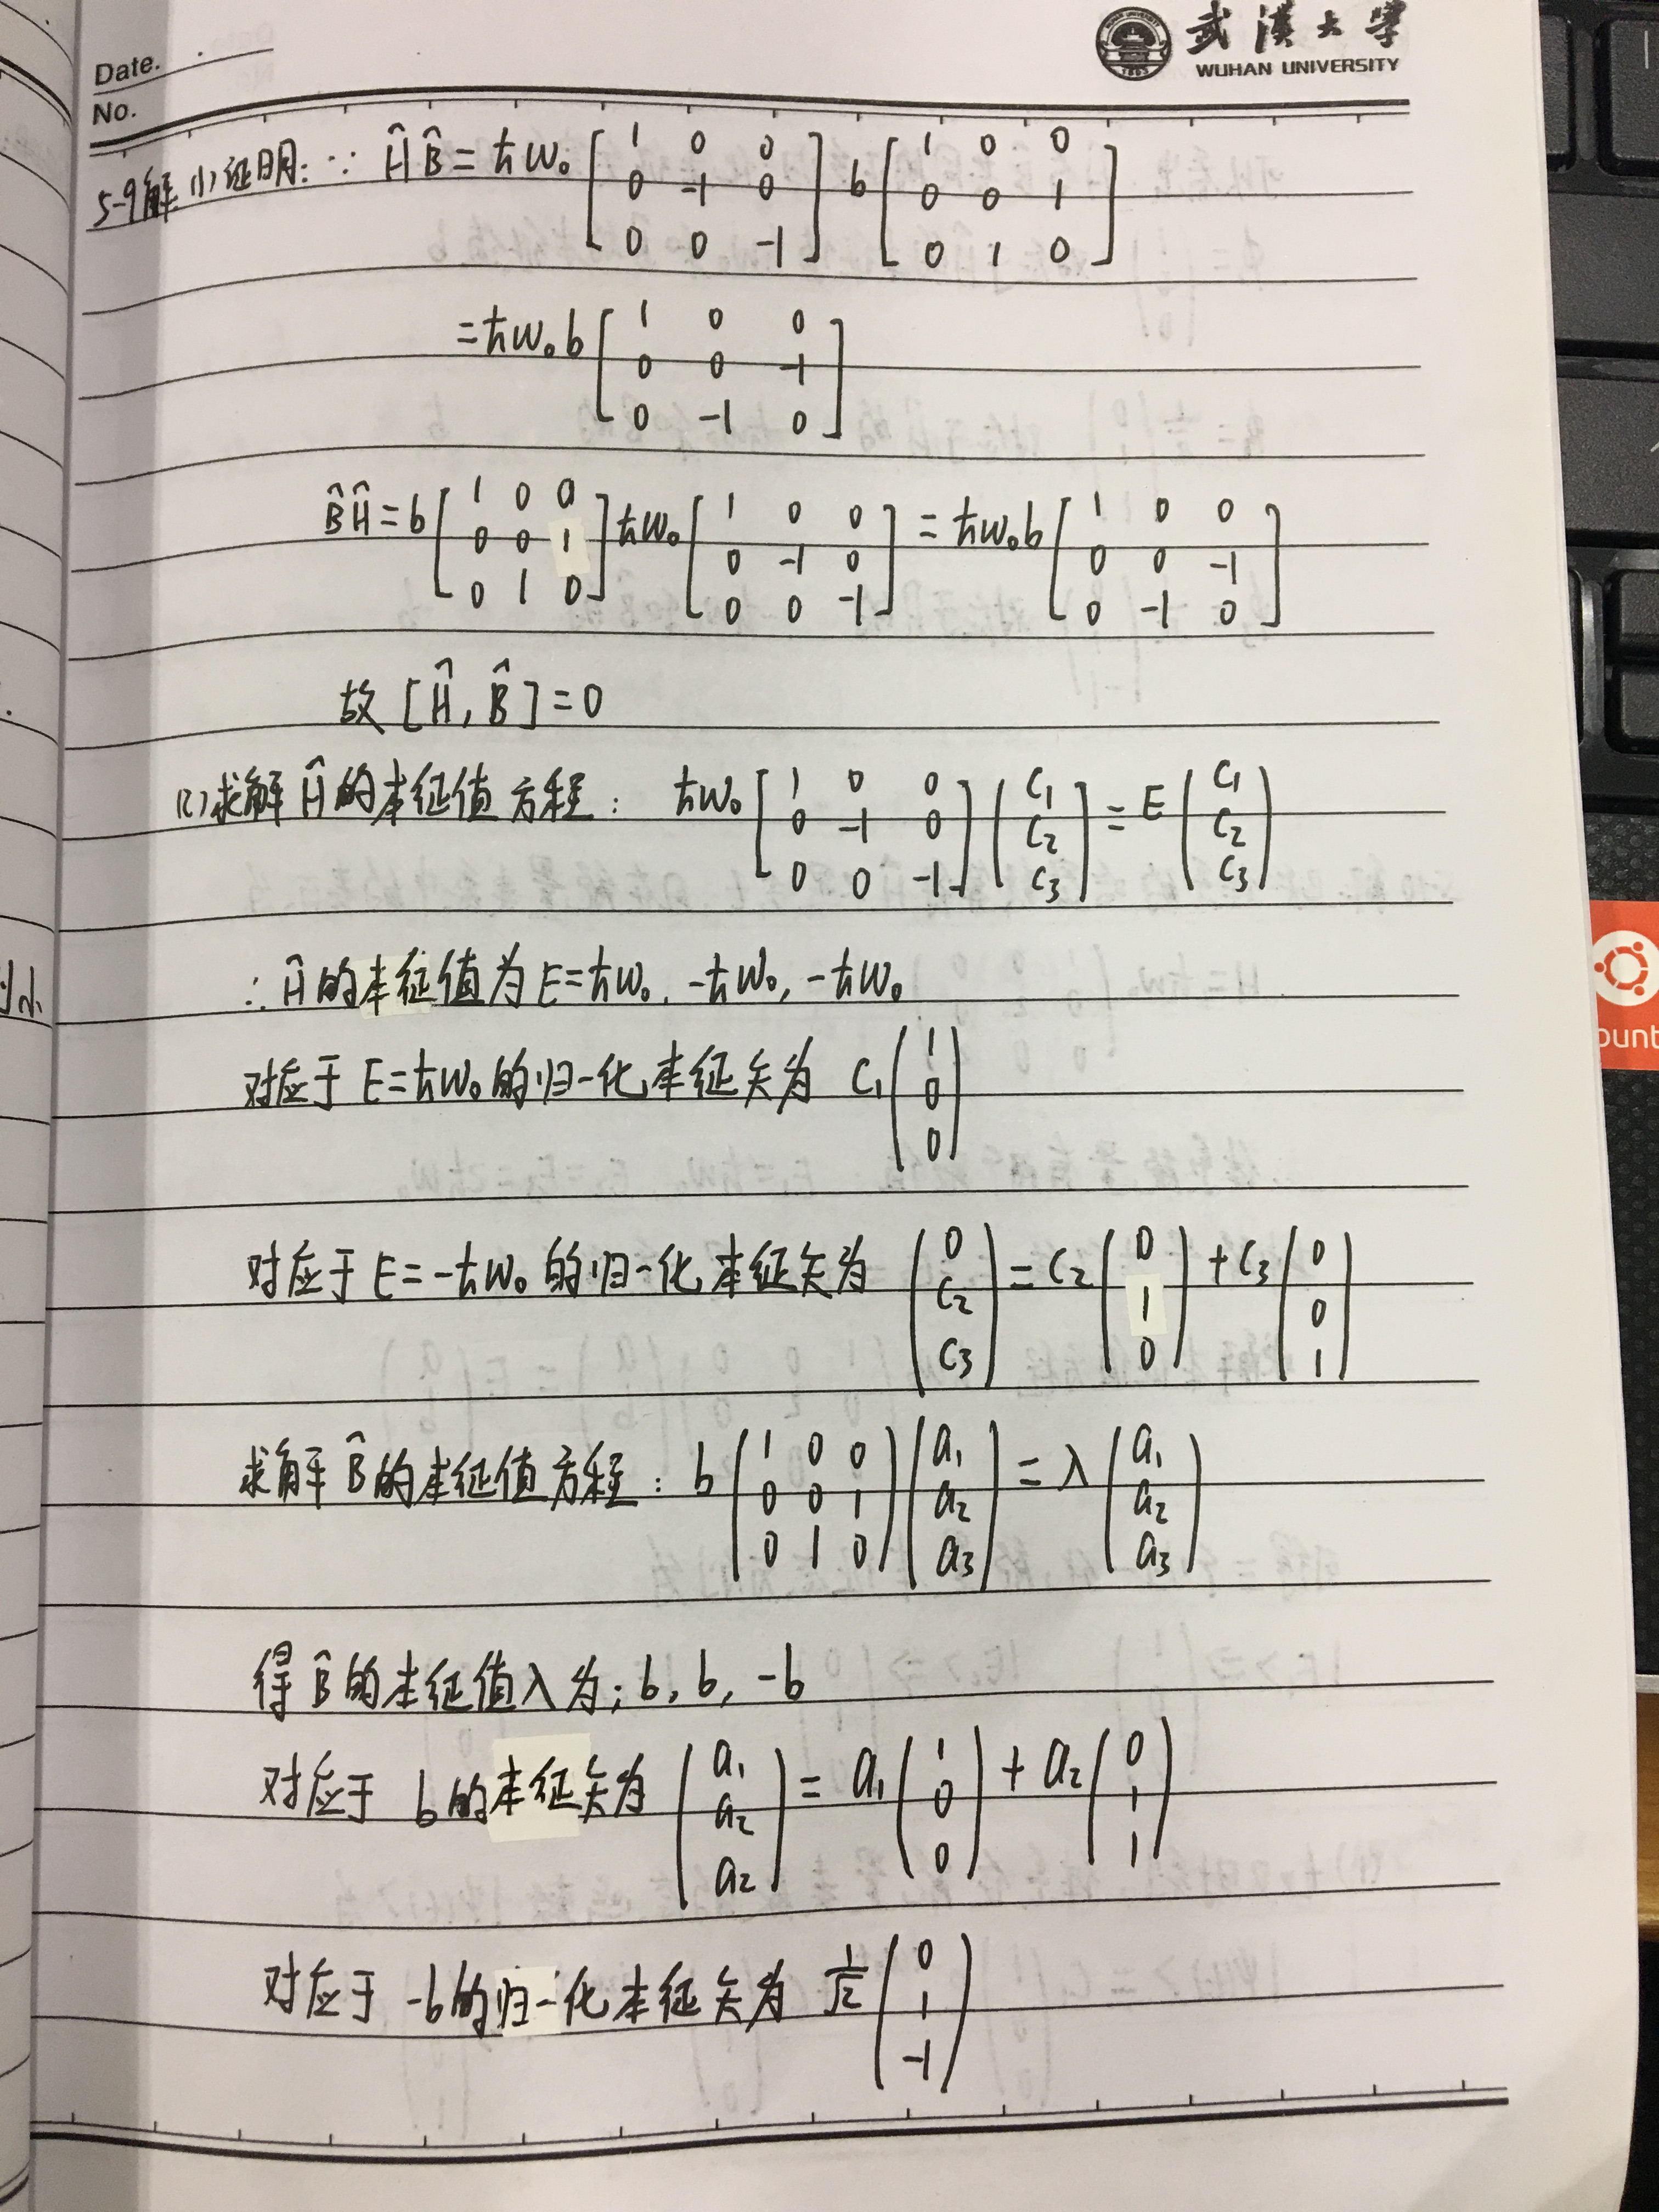 Date.
No.
武漢大學
WUHAN UNIVERSITY
5-9解 (1)证明: ∵ ĤB̂ = ħw₀ [1 0 0; 0 -1 0; 0 0 -1] b [1 0 0; 0 0 1; 0 1 0]
= ħw₀b [1 0 0; 0 0 -1; 0 -1 0]
B̂Ĥ = b [1 0 0; 0 0 1; 0 1 0] ħw₀ [1 0 0; 0 -1 0; 0 0 -1] = ħw₀b [1 0 0; 0 0 -1; 0 -1 0]
故 [Ĥ, B̂] = 0
(2)求解Ĥ的本征值方程: ħw₀ [1 0 0; 0 -1 0; 0 0 -1] (C₁; C₂; C₃) = E (C₁; C₂; C₃)
∴ Ĥ的本征值为 E=ħw₀, -ħw₀, -ħw₀
对应于 E=ħw₀的归一化本征矢为 C₁ (1; 0; 0)
对应于 E=-ħw₀ 的归一化本征矢为 (0; C₂; C₃) = C₂ (0; 1; 0) + C₃ (0; 0; 1)
求解 B̂的本征值方程: b (1 0 0; 0 0 1; 0 1 0) (a₁; a₂; a₃) = λ (a₁; a₂; a₃)
得 B̂的本征值λ为: b, b, -b
对应于 b的本征矢为 (a₁; a₂; a₂) = a₁ (1; 0; 0) + a₂ (0; 1; 1)
对应于 -b的归一化本征矢为 1/√2 (0; 1; -1)